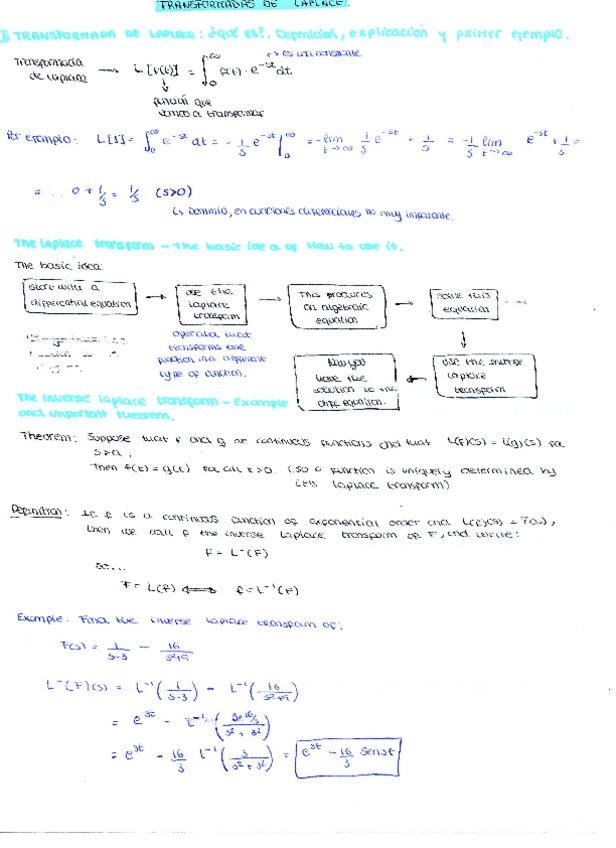 TRANSFORMADAS DE LAPLACE.
① TRANSFORMADA DE LAPLACE: ¿QUÉ ES?. Definición, explicación y primer ejemplo.
s → es una constante
Transformada de Laplace → L[f(t)] = ∫₀^∞ f(t) · e^-st dt
función que vamos a transformar
Por ejemplo: L[1] = ∫₀^∞ e^-st dt = - 1/s e^-st |₀^∞ = - lim t→∞ 1/s e^-st + 1/s = -1/s lim t→∞ e^-st + 1/s =
= ... 0 + 1/s = 1/s (s>0)
↳ Dominio, en ecuaciones diferenciales no muy importante.
The Laplace transform - The basic idea of How to use it.
The basic idea:
Start with a differential equation → use the laplace transform → This produces an algebraic equation → solve this equation
operator that transforms one function in a different type of function.
use the inverse laplace transform
Now you have the solution to the diff equation.
The inverse laplace transform - Example and important theorem.
Theorem: Suppose that f and g are continuous functions and that L(f)(s) = L(g)(s) for s>a.
Then f(t) = g(t) for all t>0. (so a function is uniquely determined by its laplace transform)
Definition: If f is a continuous function of exponential order and L(f)(s) = F(s),
then we call f the inverse laplace transform of F, and write:
F = L⁻(F)
so...
F = L(f) ⟺ f = L⁻¹(F)
Example: Find the inverse laplace transform of:
F(s) = 1/(s-3) - 16/(s²+9)
L⁻(F)(s) = L⁻¹(1/(s-3)) - L⁻¹(16/(s²+9))
= e^3t - L⁻¹(3·16/3/(s²+3²))
= e^3t - 16/3 L⁻¹(3/(s²+3²)) = e^3t - 16/3 sen3t